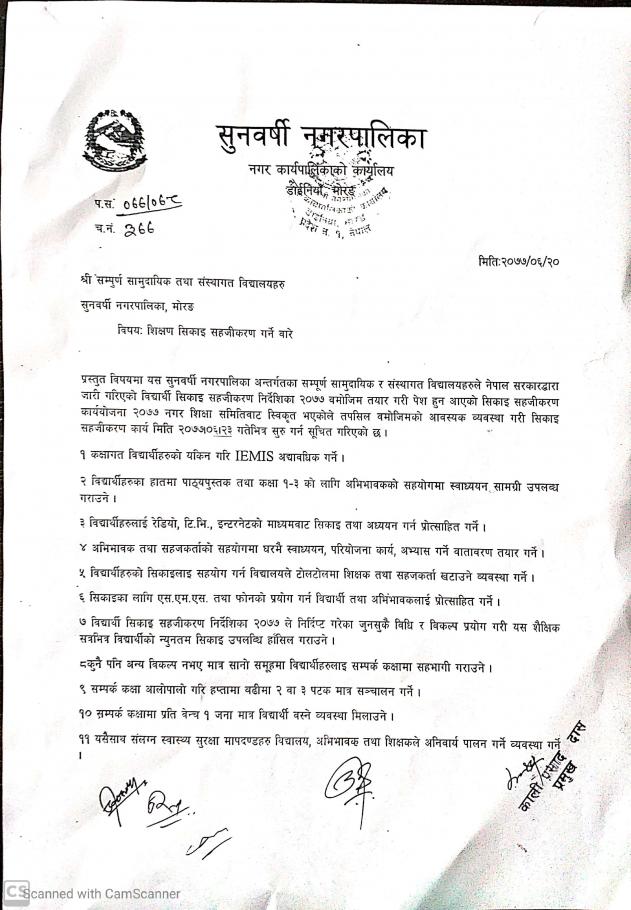 सुनवर्षी नगरपालिका
नगर कार्यपालिकाको कार्यालय
डाईनियाँ, मोरङ
प.स.
च.नं. ३६६
मितिः२०७७/०६/२०
श्री सम्पुर्ण सामुदायिक तथा संस्थागत विद्यालयहरु
सुनवर्षी नगरपालिका, मोरङ
विषय: शिक्षण सिकाइ सहजीकरण गर्ने बारे
प्रस्तुत विषयमा यस सुनवर्षी नगरपालिका अन्तर्गतका सम्पूर्ण सामुदायिक र संस्थागत विद्यालयहरुले नेपाल सरकारद्वारा
जारी गरिएको विद्यार्थी सिकाइ सहजीकरण निर्देशिका २०७७ बमोजिम तयार गरी पेश हुन आएको सिकाइ सहजीकरण
कार्ययोजना २०७७ नगर शिक्षा समितिबाट स्विकृत भएकोले तपसिल वमोजिमको आवस्यक व्यवस्था गरी सिकाइ
सहजीकरण कार्य मिति २०७७।०६।२३ गतेभित्र सुरु गर्न सूचित गरिएको छ।
१ कक्षागत विद्यार्थीहरुको यकिन गरि IEMIS अद्यावधिक गर्ने।
२ विद्यार्थीहरुका हातमा पाठ्यपुस्तक तथा कक्षा १-३ को लागि अभिभावकको सहयोगमा स्वाध्ययन सामग्री उपलब्ध
गराउने।
३ विद्यार्थीहरुलाई रेडियो, टि.भि., इन्टरनेटको माध्यमवाट सिकाइ तथा अध्ययन गर्न प्रोत्साहित गर्ने।
४ अभिभावक तथा सहजकर्ताको सहयोगमा घरमै स्वाध्ययन, परियोजना कार्य, अभ्यास गर्ने वातावरण तयार गर्ने।
५ विद्यार्थीहरुको सिकाइलाइ सहयोग गर्न विद्यालयले टोलटोलमा शिक्षक तथा सहजकर्ता खटाउने व्यवस्था गर्ने।
६ सिकाइका लागि एस.एम.एस. तथा फोनको प्रयोग गर्न विद्यार्थी तथा अभिभावकलाई प्रोत्साहित गर्ने।
७ विद्यार्थी सिकाइ सहजीकरण निर्देशिका २०७७ ले निर्दिष्ट गरेका जुनसुकै विधि र विकल्प प्रयोग गरी यस शैक्षिक
सत्रभित्र विद्यार्थीको न्युनतम सिकाइ उपलब्धि हाँसिल गराउने।
८कुनै पनि अन्य विकल्प नभए मात्र सानो समूहमा विद्यार्थीहरुलाइ सम्पर्क कक्षामा सहभागी गराउने।
९ सम्पर्क कक्षा आलोपालो गरि हप्तामा वढीमा २ वा ३ पटक मात्र सञ्चालन गर्ने।
१० सम्पर्क कक्षामा प्रति वेन्च १ जना मात्र विद्यार्थी वस्ने व्यवस्था मिलाउने।
११ यसैसाथ संलग्न स्वास्थ्य सुरक्षा मापदण्डहरु विद्यालय, अभिभावक तथा शिक्षकले अनिवार्य पालन गर्ने व्यवस्था गर्ने
।
काली प्रसाद दास
प्रमुख
CS Scanned with CamScanner